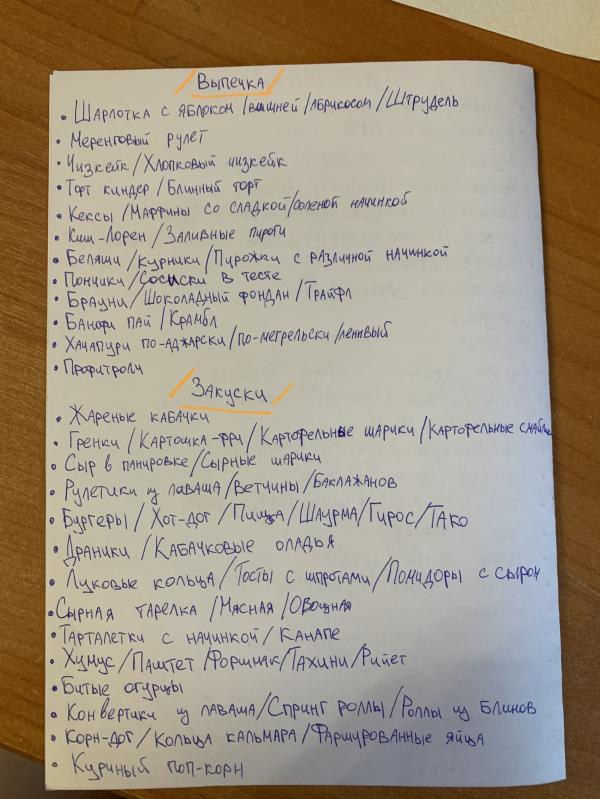 Выпечка
• Шарлотка с яблоком/вишней/абрикосом/Штрудель
• Меренговый рулет
• Чизкейк/Хлопковый чизкейк
• Торт киндер/Блинный торт
• Кексы/Маффины со сладкой/соленой начинкой
• Киш-Лорен/Заливные пироги
• Беляши/Курники/Пирожки с различной начинкой
• Пончики/Сосиски в тесте
• Брауни/Шоколадный фондан/Трайфл
• Банофи пай/Крамбл
• Хачапури по-аджарски/по-мегрельски/ленивый
• Профитроли
Закуски
• Жареные кабачки
• Гренки/Картошка-фри/Картофельные шарики/Картофельные смайлики
• Сыр в панировке/Сырные шарики
• Рулетики из лаваша/Ветчины/Баклажанов
• Бургеры/Хот-дог/Пицца/Шаурма/Гирос/Тако
• Драники/Кабачковые оладья
• Луковые кольца/Тосты с шпротами/Помидоры с сыром
• Сырная тарелка/Мясная/Овощная
• Тарталетки с начинкой/Канапе
• Хумус/Паштет/Форшмак/Тахини/Рийет
• Битые огурцы
• Конвертики из лаваша/Спринг роллы/Роллы из блинов
• Корн-дог/Кольца кальмара/Фаршированные яйца
• Куриный поп-корн